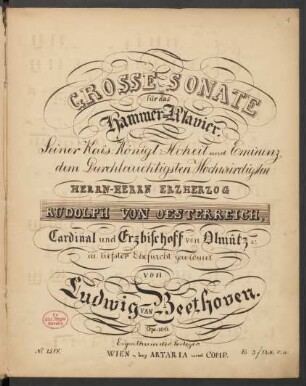 GROSSE SONATE
für das
Hammer-Klavier.
Seiner Kais. Königl. Hoheit und Eminenz,
dem Durchlauchtigsten Hochwürdigsten
HERRN HERRN ERZHERZOG
RUDOLPH VON OESTERREICH,
Cardinal und Erzbischoff von Olmütz
in tiefster Ehrfurcht gewidmet
von
Ludwig
VAN Beethoven.
Op. 106.
Eigenthum der Verleger
WIEN, bey ARTARIA und COMP.